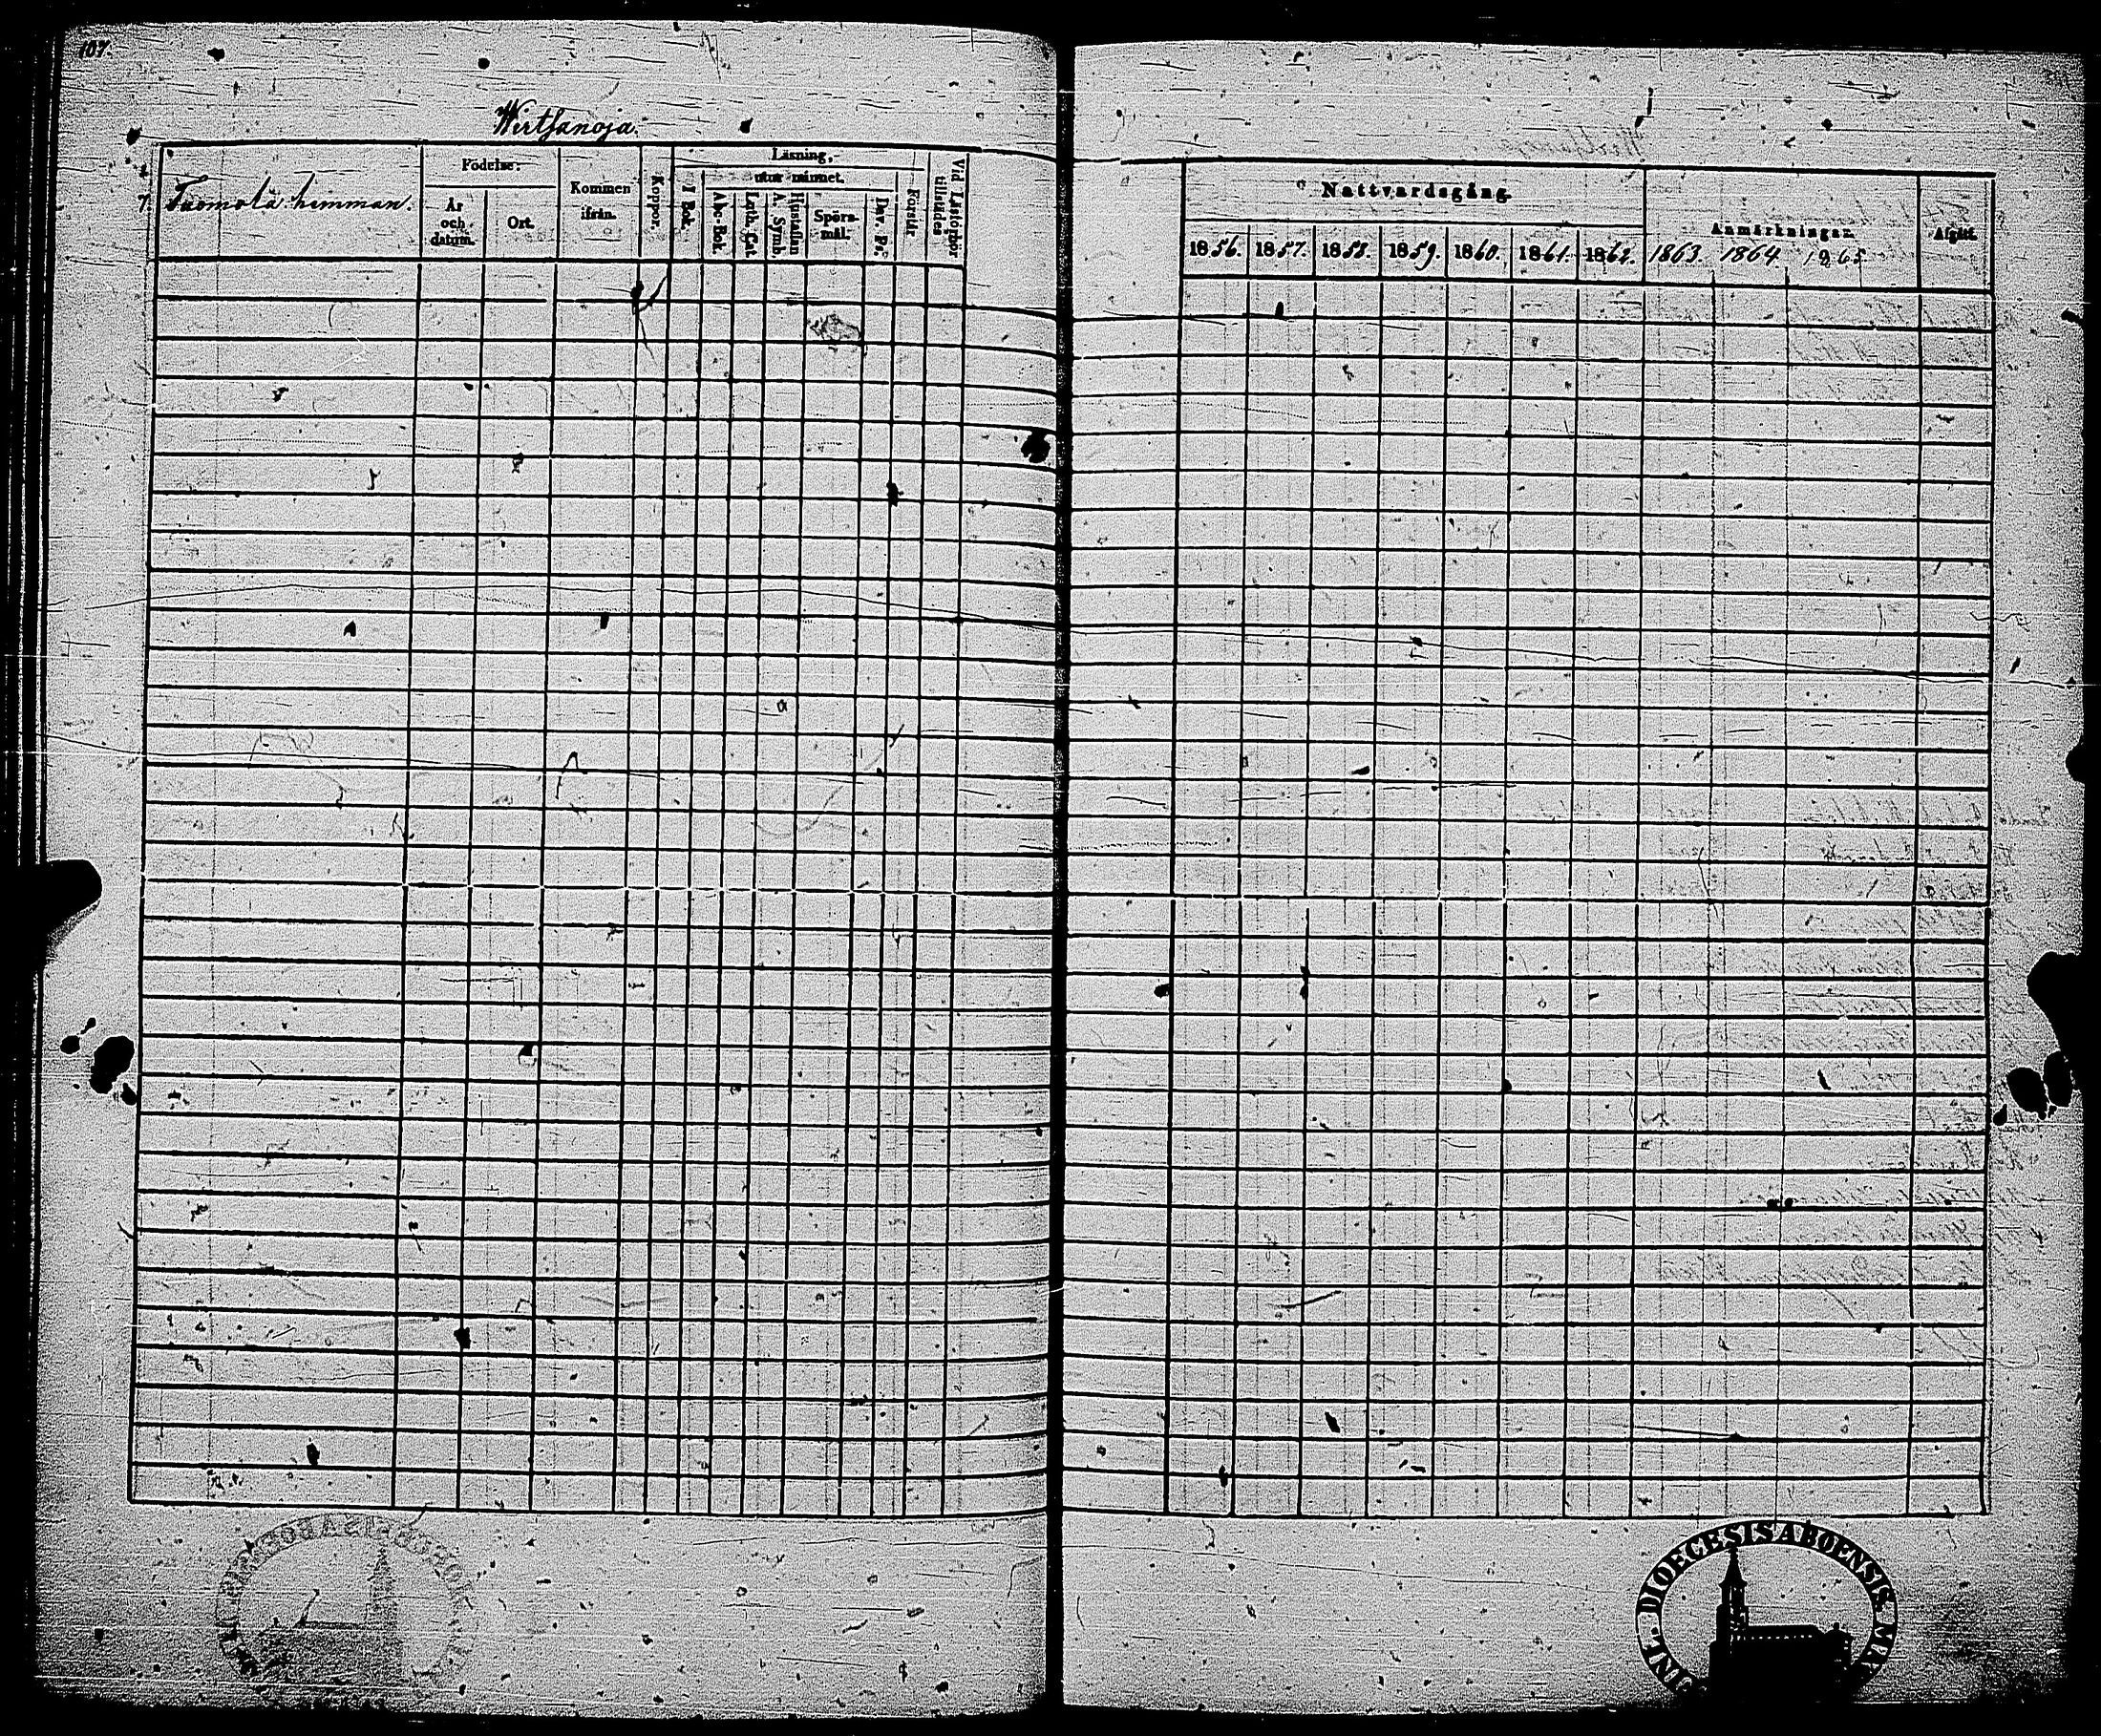 107.
Wirtsanoja.
7. Tuomola hemman.
Födelse.
År och datum.
Ort.
Kommen ifrån.
Koppor.
Läsning,
utur minnet.
I Bok.
Abc-Bok.
Luth. Cat.
Hustaflan A. Symb.
Spörsmål.
Dav. Ps.
Förstår
Vid Läsförhör tillstädes
Nattvardsgång.
1856. 1857. 1858. 1859. 1860. 1861. 1862.
Anmärkningar.
1863. 1864. 1865
Afgått.
DIOECESIS ABOENSIS